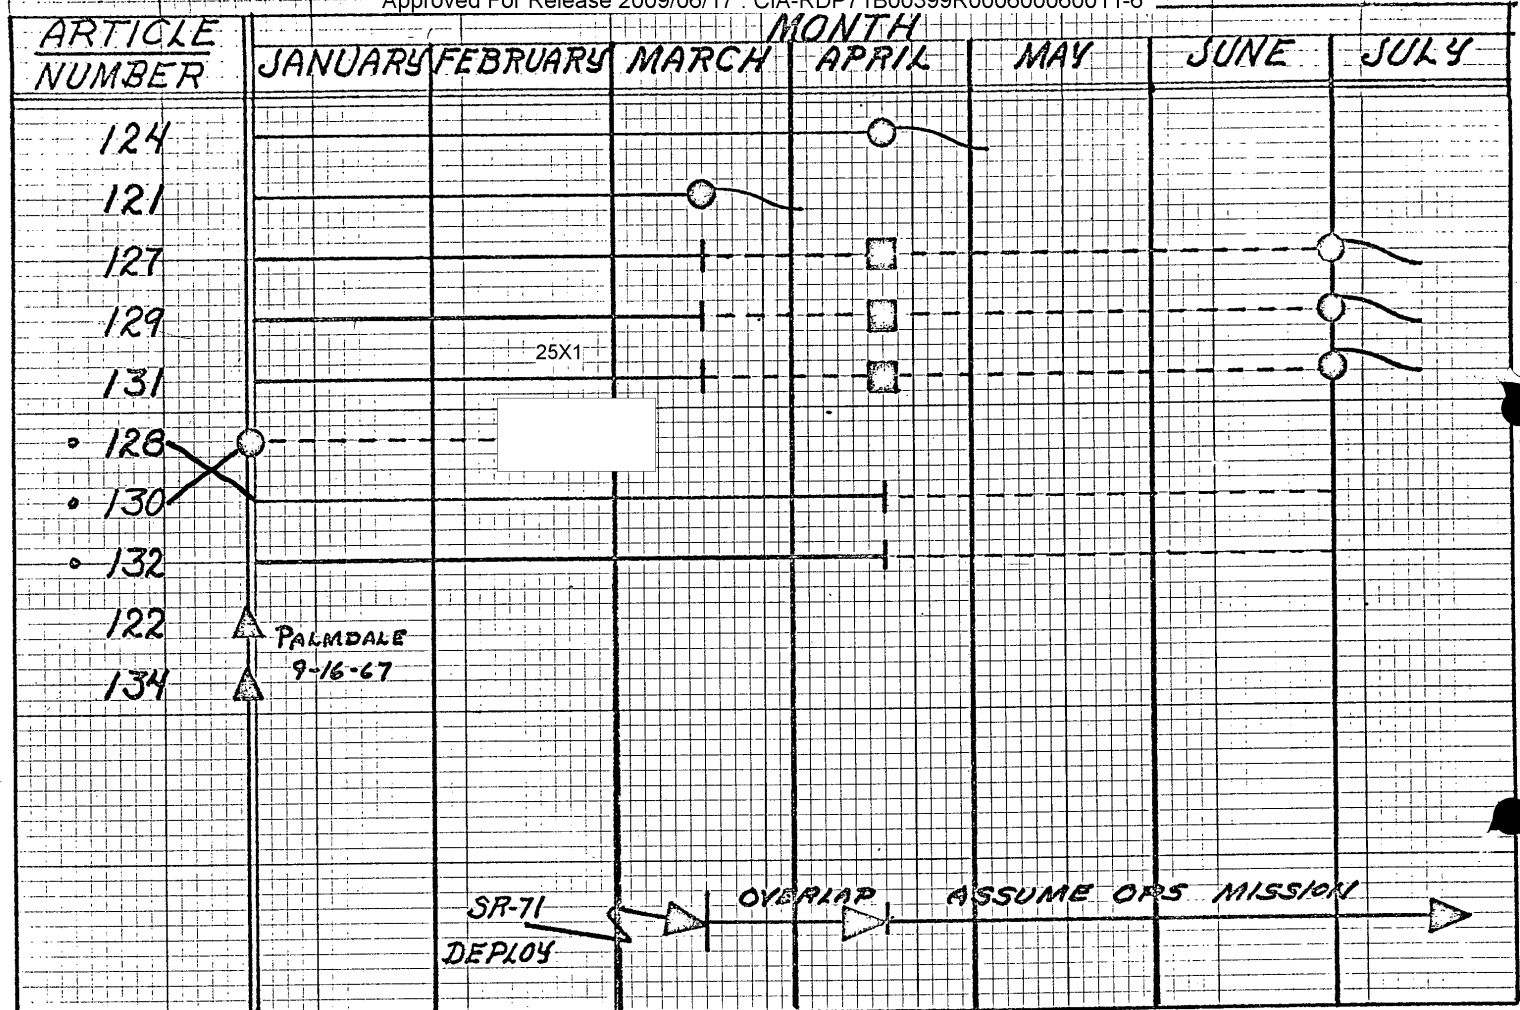 Approved For Release 2009/06/17 : CIA-RDP71B00399R000600060011-6
ARTICLE NUMBER
MONTH
JANUARY FEBRUARY MARCH APRIL MAY JUNE JULY
124
121
127
129
25X1
131
128
130
132
122
PALMDALE
9-16-67
134
OVERLAP ASSUME OPS MISSION
SR-71
DEPLOY